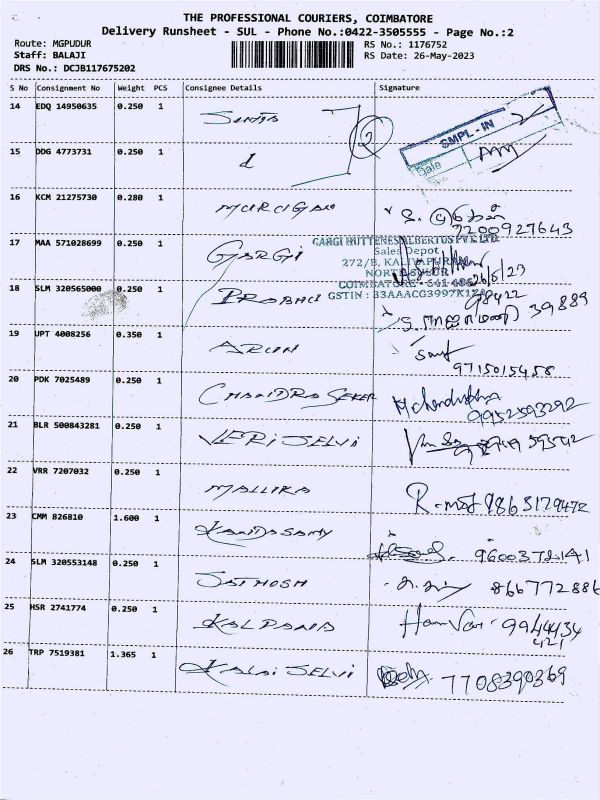 THE PROFESSIONAL COURIERS, COIMBATORE
Delivery Runsheet - SUL - Phone No.:0422-3505555 - Page No.:2
Route: MGPUDUR
RS No.: 1176752
Staff: BALAJI
RS Date: 26-May-2023
DRS No.: DCJB117675202
S No Consignment No Weight PCS Consignee Details Signature
14 EDQ 14950635 0.250 1
2
SMPL-IN
Date
15 DDG 4773731 0.250 1
16 KCM 21275730 0.280 1 MURUGAN
7200927643
17 MAA 571028699 0.250 1 GARGI
GARGI HUTTENES ALBERTUS PVT LTD
Sales Depot
272/B, KALIYAPURAM
26/5/23
18 SLM 320565000 0.250 1 PRABHU
GSTIN : 33AAACG3997K1ZA
98422 39889
19 UPT 4008256 0.350 1 ARUN
9715015458
20 PDK 7025489 0.250 1 CHANDRA SEKER
9952593292
21 BLR 500843281 0.250 1 VERI SELVI
22 VRR 7207032 0.250 1 MALLIKA
9863129472
23 CMM 826810 1.600 1 KANDASAMY
9600372141
24 SLM 320553148 0.250 1 SATHOSH
866772886
25 HSR 2741774 0.250 1 KALPANA
9944434
421
26 TRP 7519381 1.365 1 KALAI SELVI
7708390369